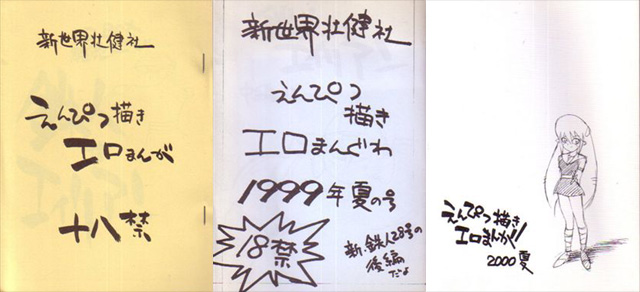 新世界壮健社
えんぴつ描き
エロまんが
十八禁
新世界壮健社
えんぴつ
描き
エロまんぐわ
1999年夏の号
18禁
新・鉄人28号の
後編
だよ
えんぴつ描き
エロまんが!
2000夏